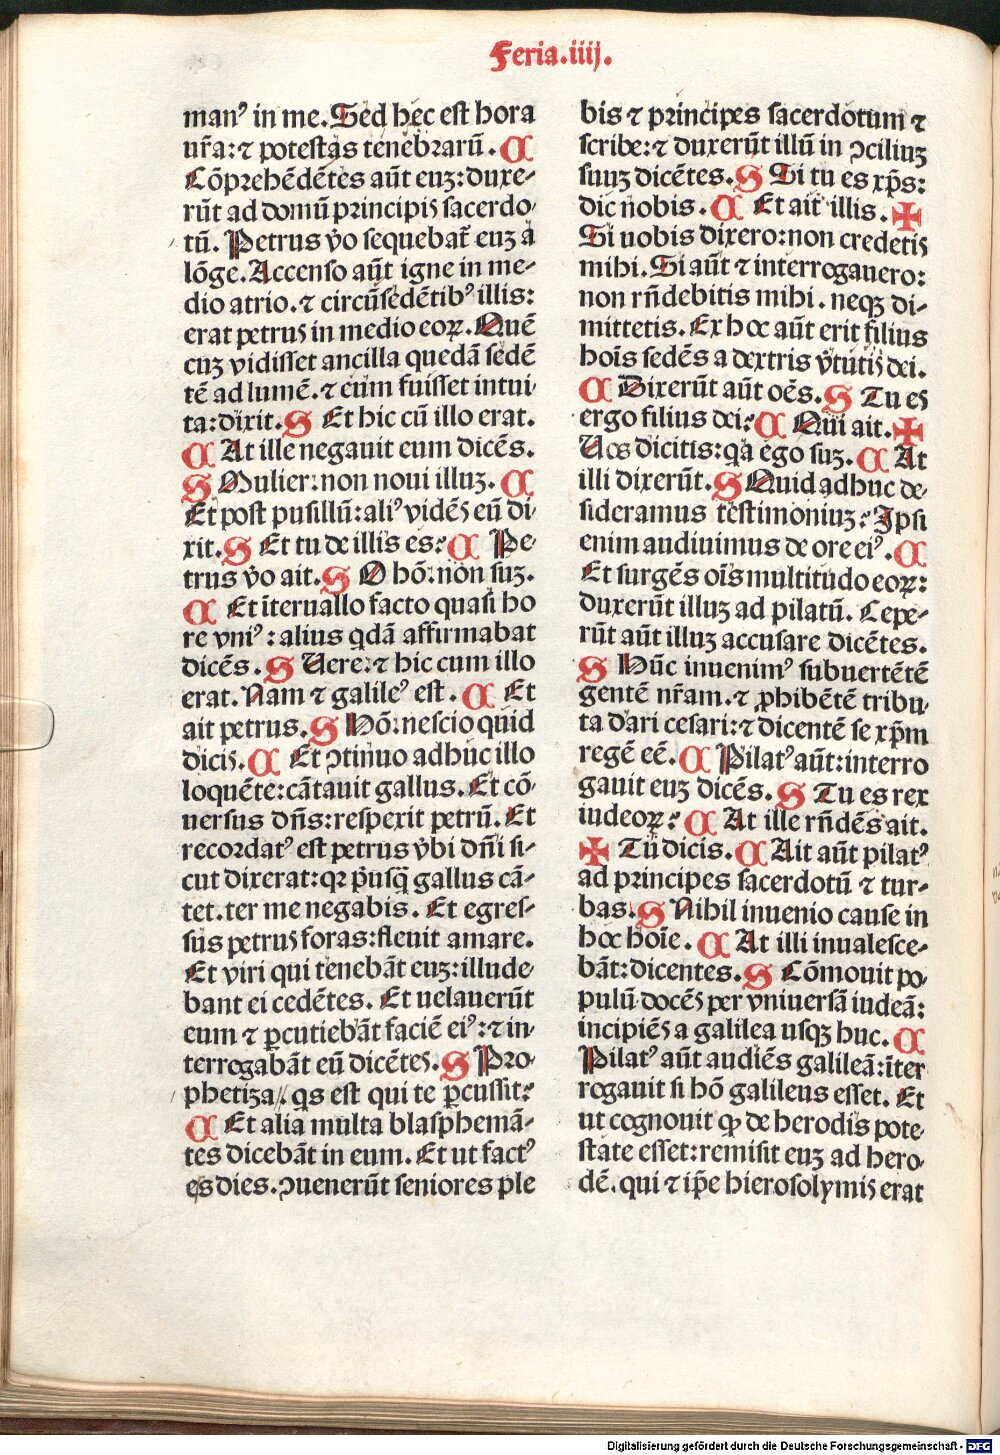 Feria.iiij.
manꝰ in me. Sed hec est hora
ur̃a: ⁊ potestas tenebrarũ. C
Cõprehẽdẽtes aũt euꝫ: duxe-
rũt ad domũ principis sacerdo-
tũ. Petrus ṽo sequebat̃ euꝫ a
lõge. Accenso aũt igne in me-
dio atrio. ⁊ circũsedẽtibꝰ illis:
erat petrus in medio eoꝝ. Quẽ
cuꝫ vidisset ancilla quedã sedẽ
tẽ ad lumẽ. ⁊ eum fuisset intui-
ta: dixit. S Et hic cũ illo erat.
C At ille negauit eum dicẽs.
S Mulier: non noui illuꝫ. C
Et post pusillũ: aliꝰ vidẽs eũ di-
xit. S Et tu de illis es? C Pe-
trus ṽo ait. S O hõ: non suꝫ.
C Et ĩteruallo facto quasi ho
re vniꝰ: alius qdã affirmabat
dicẽs. S Uere: ⁊ hic cum illo
erat. Nam ⁊ galileꝰ est. C Et
ait petrus. S Hõ: nescio quid
dicis. C Et ꝯtinuo adhuc illo
loquẽte: cãtauit gallus. Et cõ-
uersus dñs: respexit petrũ. Et
recordatꝰ est petrus ṽbi dñi si-
cut dixerat: qꝛ p̃usꝗ̃ gallus cã-
tet. ter me negabis. Et egres-
sus petrus foras: fleuit amare.
Et viri qui tenebãt euꝫ: illude-
bant ei cedẽtes. Et uelauerũt
eum ⁊ ꝑcutiebãt faciẽ eiꝰ: ⁊ in-
terrogabãt eũ dicẽtes. S Pro-
phetiza. qs est qui te ꝑcussit?
C Et alia multa blasphemã-
tes dicebãt in eum. Et ut factꝰ
es dies. ꝯuenerũt seniores ple
bis ⁊ principes sacerdotum ⁊
scribe: ⁊ duxerũt illũ in ꝯciliuꝫ
suuꝫ dicẽtes. S Si tu es xp̃s:
dic nobis. C Et ait illis. ✠
Si uobis dixero: non credetis
mihi. Si aũt ⁊ interrogauero:
non rñdebitis mihi. neqꝫ di-
mittetis. Ex hoc aũt erit filius
hoĩs sedẽs a dextris ṽtutis dei.
C Dixerũt aũt oẽs. S Tu es
ergo filius dei? C Qui ait. ✠
Uos dicitis: qa ego suꝫ. C At
illi dixerũt. S Quid adhuc de-
sideramus testimoniuꝫ? Ipsi
enim audiuimus de ore eiꝰ. C
Et surgẽs oĩs multitudo eoꝝ:
duxerũt illuꝫ ad pilatũ. Cepe-
rũt aũt illuꝫ accusare dicẽtes.
S Hũc inuenimꝰ subuertẽtẽ
gentẽ nr̃am. ⁊ ꝓhibẽtẽ tribu-
ta dari cesari: ⁊ dicentẽ se xp̃m
regẽ eẽ. C Pilatꝰ aũt: interro
gauit euꝫ dicẽs. S Tu es rex
iudeoꝝ? C At ille rñdẽs ait.
✠ Tu dicis. C Ait aũt pilatꝰ
ad principes sacerdotũ ⁊ tur-
bas. S Nihil inuenio cause in
hoc hoĩe. C At illi inualesce-
bãt: dicentes. S Cõmouit po-
pulũ docẽs per vniuersã iudeã:
incipiẽs a galilea usqꝫ huc. C
Pilatꝰ aũt audiẽs galileã: ĩter
rogauit si hõ galileus esset. Et
ut cognouit ꝙ de herodis pote-
state esset: remisit euꝫ ad hero-
dẽ. qui ⁊ ip̃e hierosolymis erat
Digitalisierung gefördert durch die Deutsche Forschungsgemeinschaft - DFG